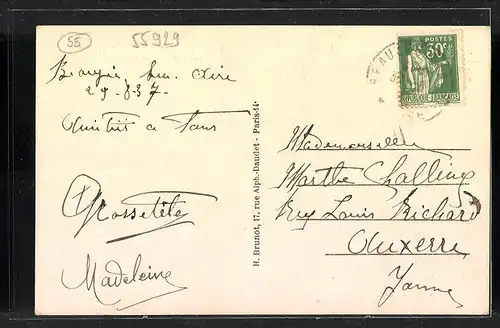 55
55929
29-8-37-
a Tous
Grossetête
Madeleine
H. Brunot, 17, rue Alph.-Daudet - Paris-14ᵉ
POSTES
30ᶜ
REPUBLIQUE FRANÇAISE
Mademoiselle
Marthe
Rue Louis Richard
Auxerre
Yonne